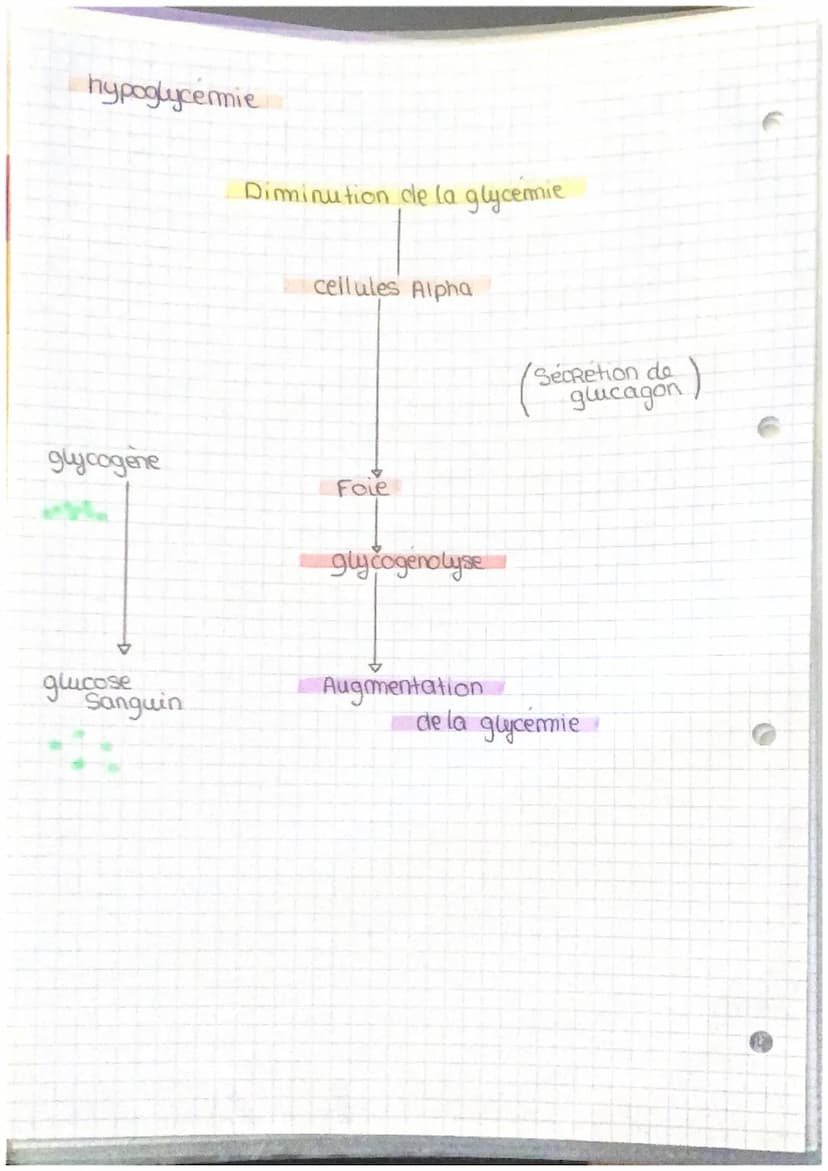 hypoglycémie
Diminution de la glycémie
cellules Alpha
(Sécrétion de
glucagon)
glycogène
Foie
glycogénolyse
glucose
Sanguin
Augmentation
de la glycémie